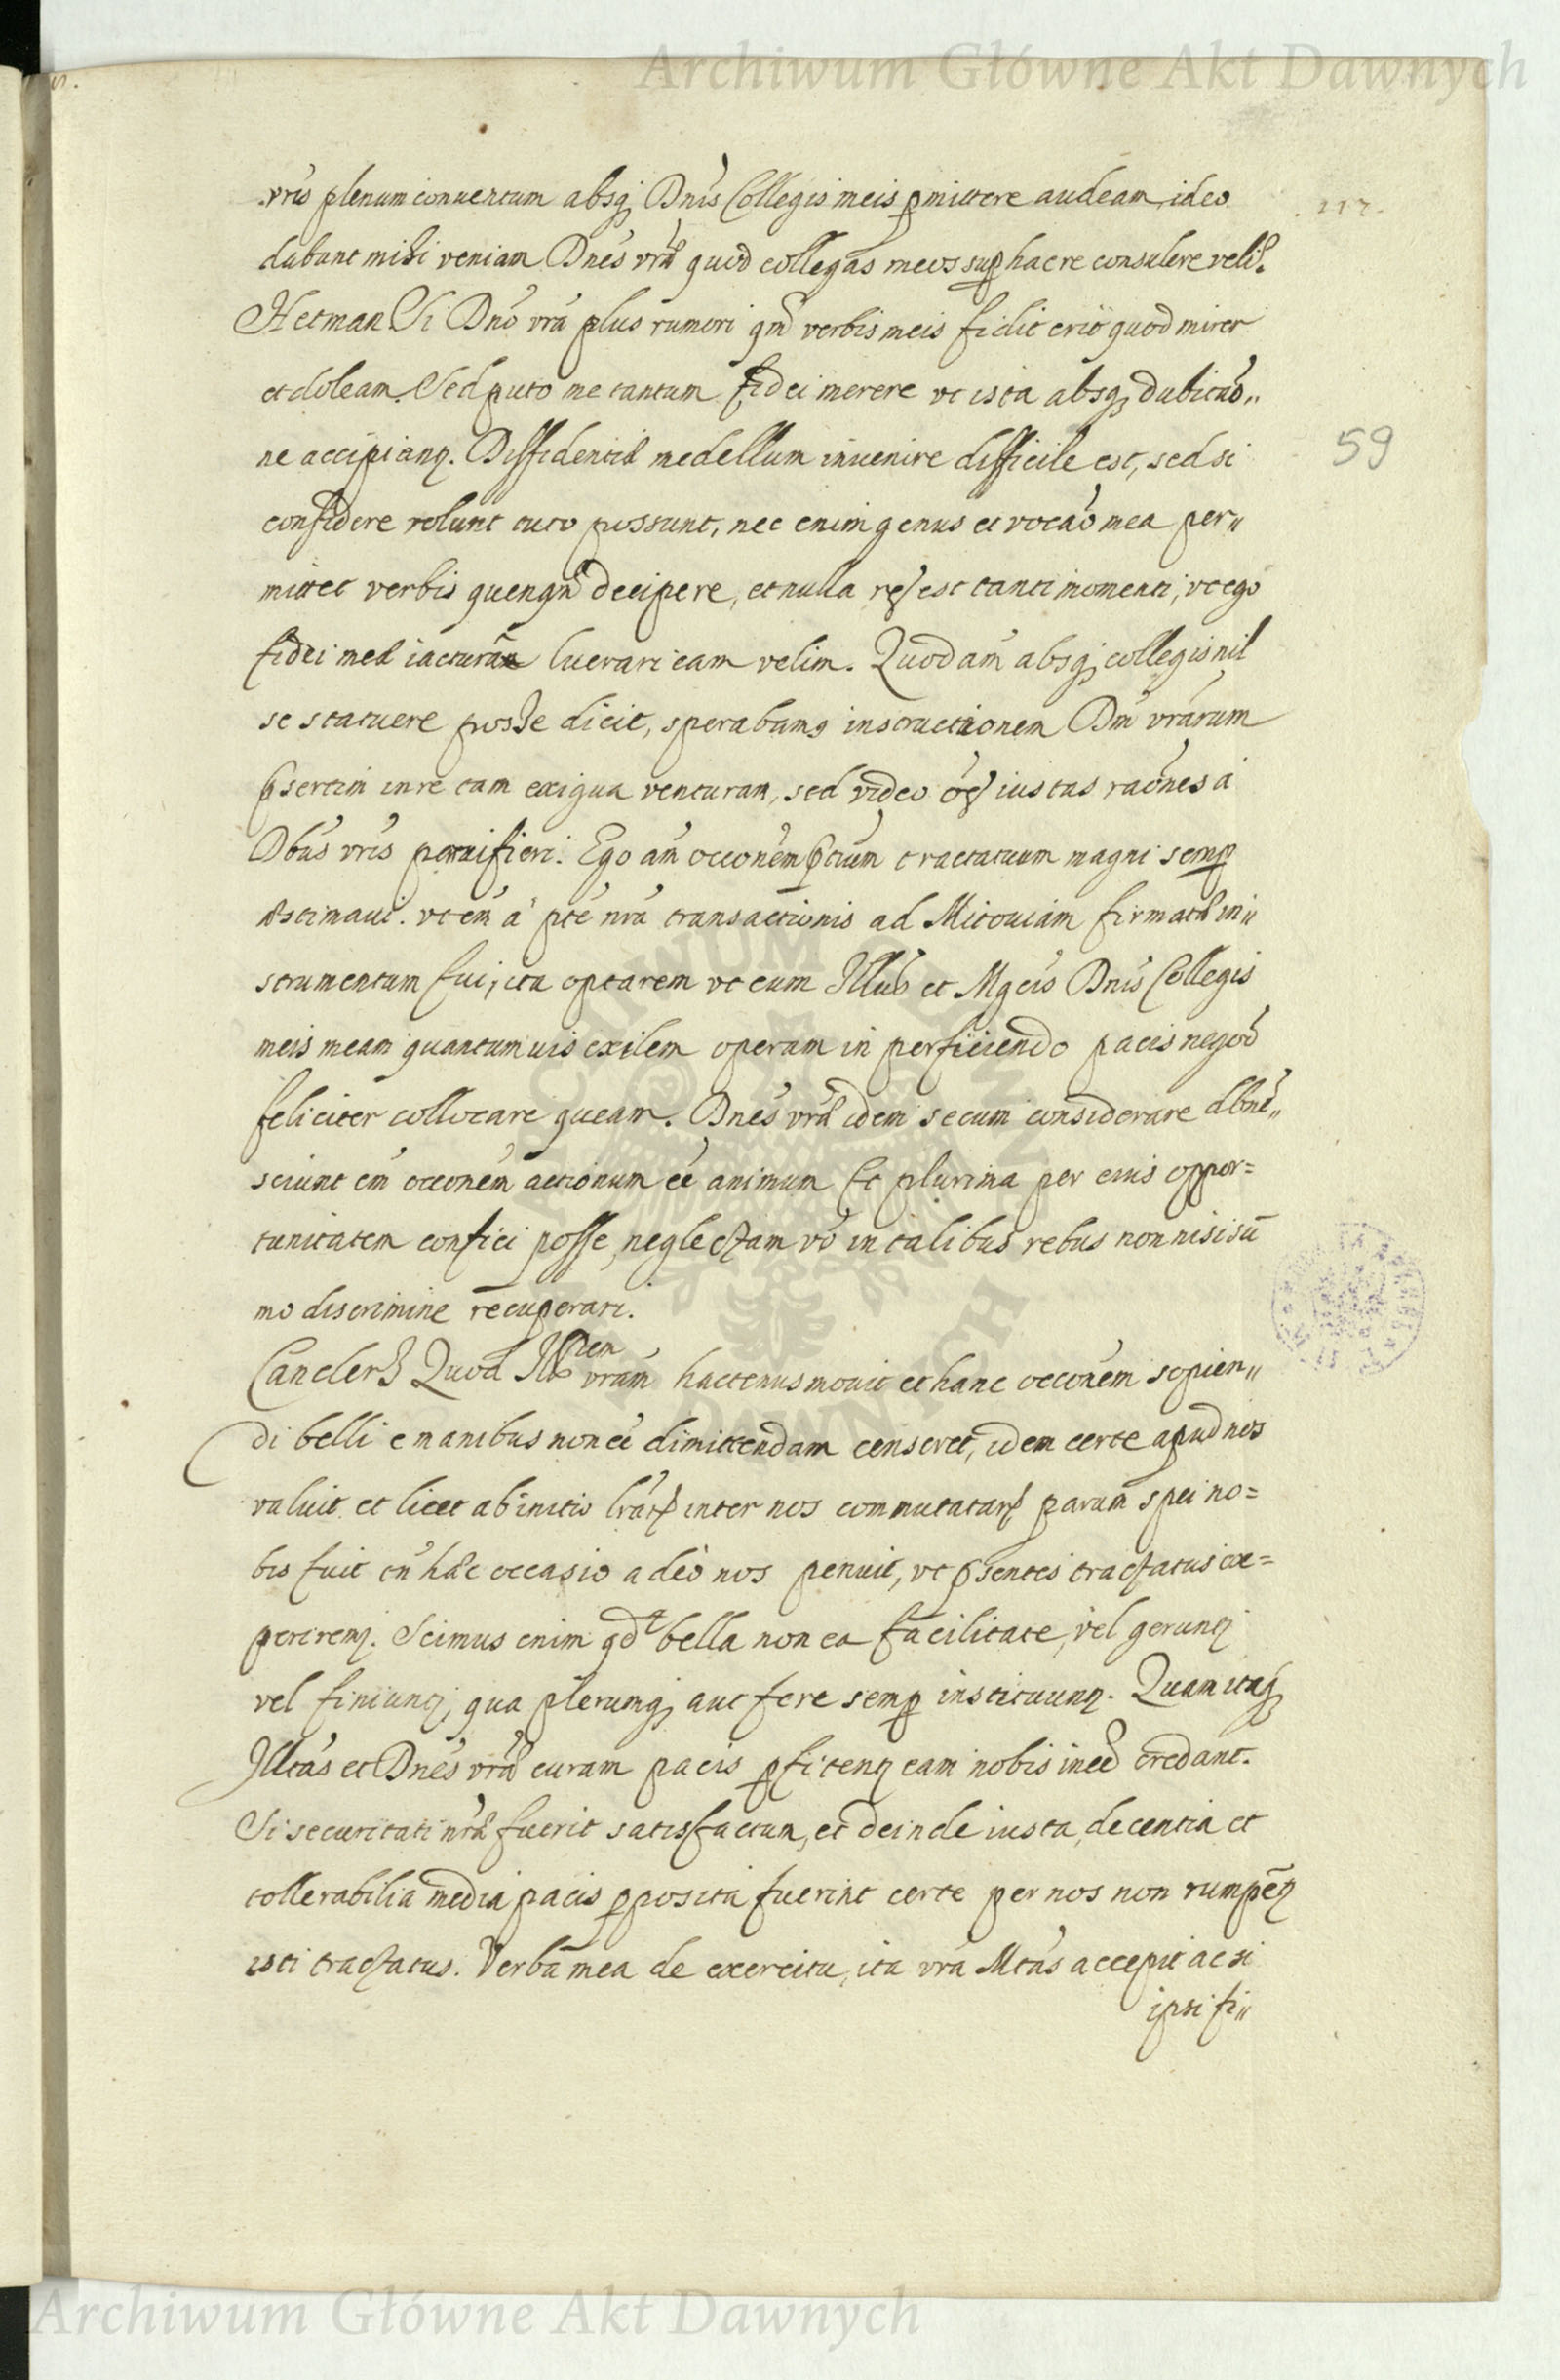 Archiwum Główne Akt Dawnych
vris plenum conventum absq; Dnis Collegis meis pmittere audeam, ideo
117.
dabunt mihi veniam Dnes vræ quod collegas meos sup hac re consulere velim.
Hetman Si Dno vra plus rumori qm verbis meis fidit erit quod mirer
et doleam. Sed puto me tantum fidei merere ut ista absq; dubitao„
ne accipianq. Diffidentiæ medellum invenire difficile est, sed si
59
confidere volunt tuto possunt, nec enim genus et vocao mea per„
mittet verbis quenqm decipere, et nulla res est tanti momenti, ut ego
fidei meæ iacturam luerari eam velim. Quod am absq; collegis nil
se statuere posse dicit, sperabamq instructionem Dm vrarum
psertim in re tam exigua venturam, sed video oes iustas raones a
Dbus vris parvifieri. Ego am occonem ptium tractatuum magni semp
æstimavi. ut em a pte nra transactionis ad Mitoviam firmatæ in„
strumentum fui, ita optarem ut cum Illub et Mgcis Dnis Collegis
meis meam quantumvis exilem operam in perficiendo pacis negoo
feliciter collocare queam. Dnes vræ idem secum considerare dbnt„
sciunt em occonem actionum ee animum Et plurima per eius oppor=
tunitatem confici posse, neglectam vo in talibus rebus non nisi sū
mo discrimine recuperari.
Canclerz Quod Illb Dtem vram hactenus movit et hanc occonem sopien„
di belli e manibus non ee dimittendam censeret, idem certe apud nos
valuit et licet ab initio lrarz inter nos commutatarz parum spei no=
bis fuit tn hæc occasio adeo nos penuit, ut psentes tractatus ex=
periremq. Scimus enim qd bella non ea facilitate, vel gerunq
vel finiunq, qua plerumq; aut fere semp instituunq. Quam itaq;
Illtas et Dnes vræ curam pacis pfitenq eam nobis inee credant.
Si securitati nræ fuerit satisfactum, et deinde iusta, decentia et
tollerabilia media pacis pposita fuerint certe per nos non rumpēq
isti tractatus. Verba mea de exercitu, ita vra Mtas accepit ac si
ipsi fi„
Archiwum Główne Akt Dawnych